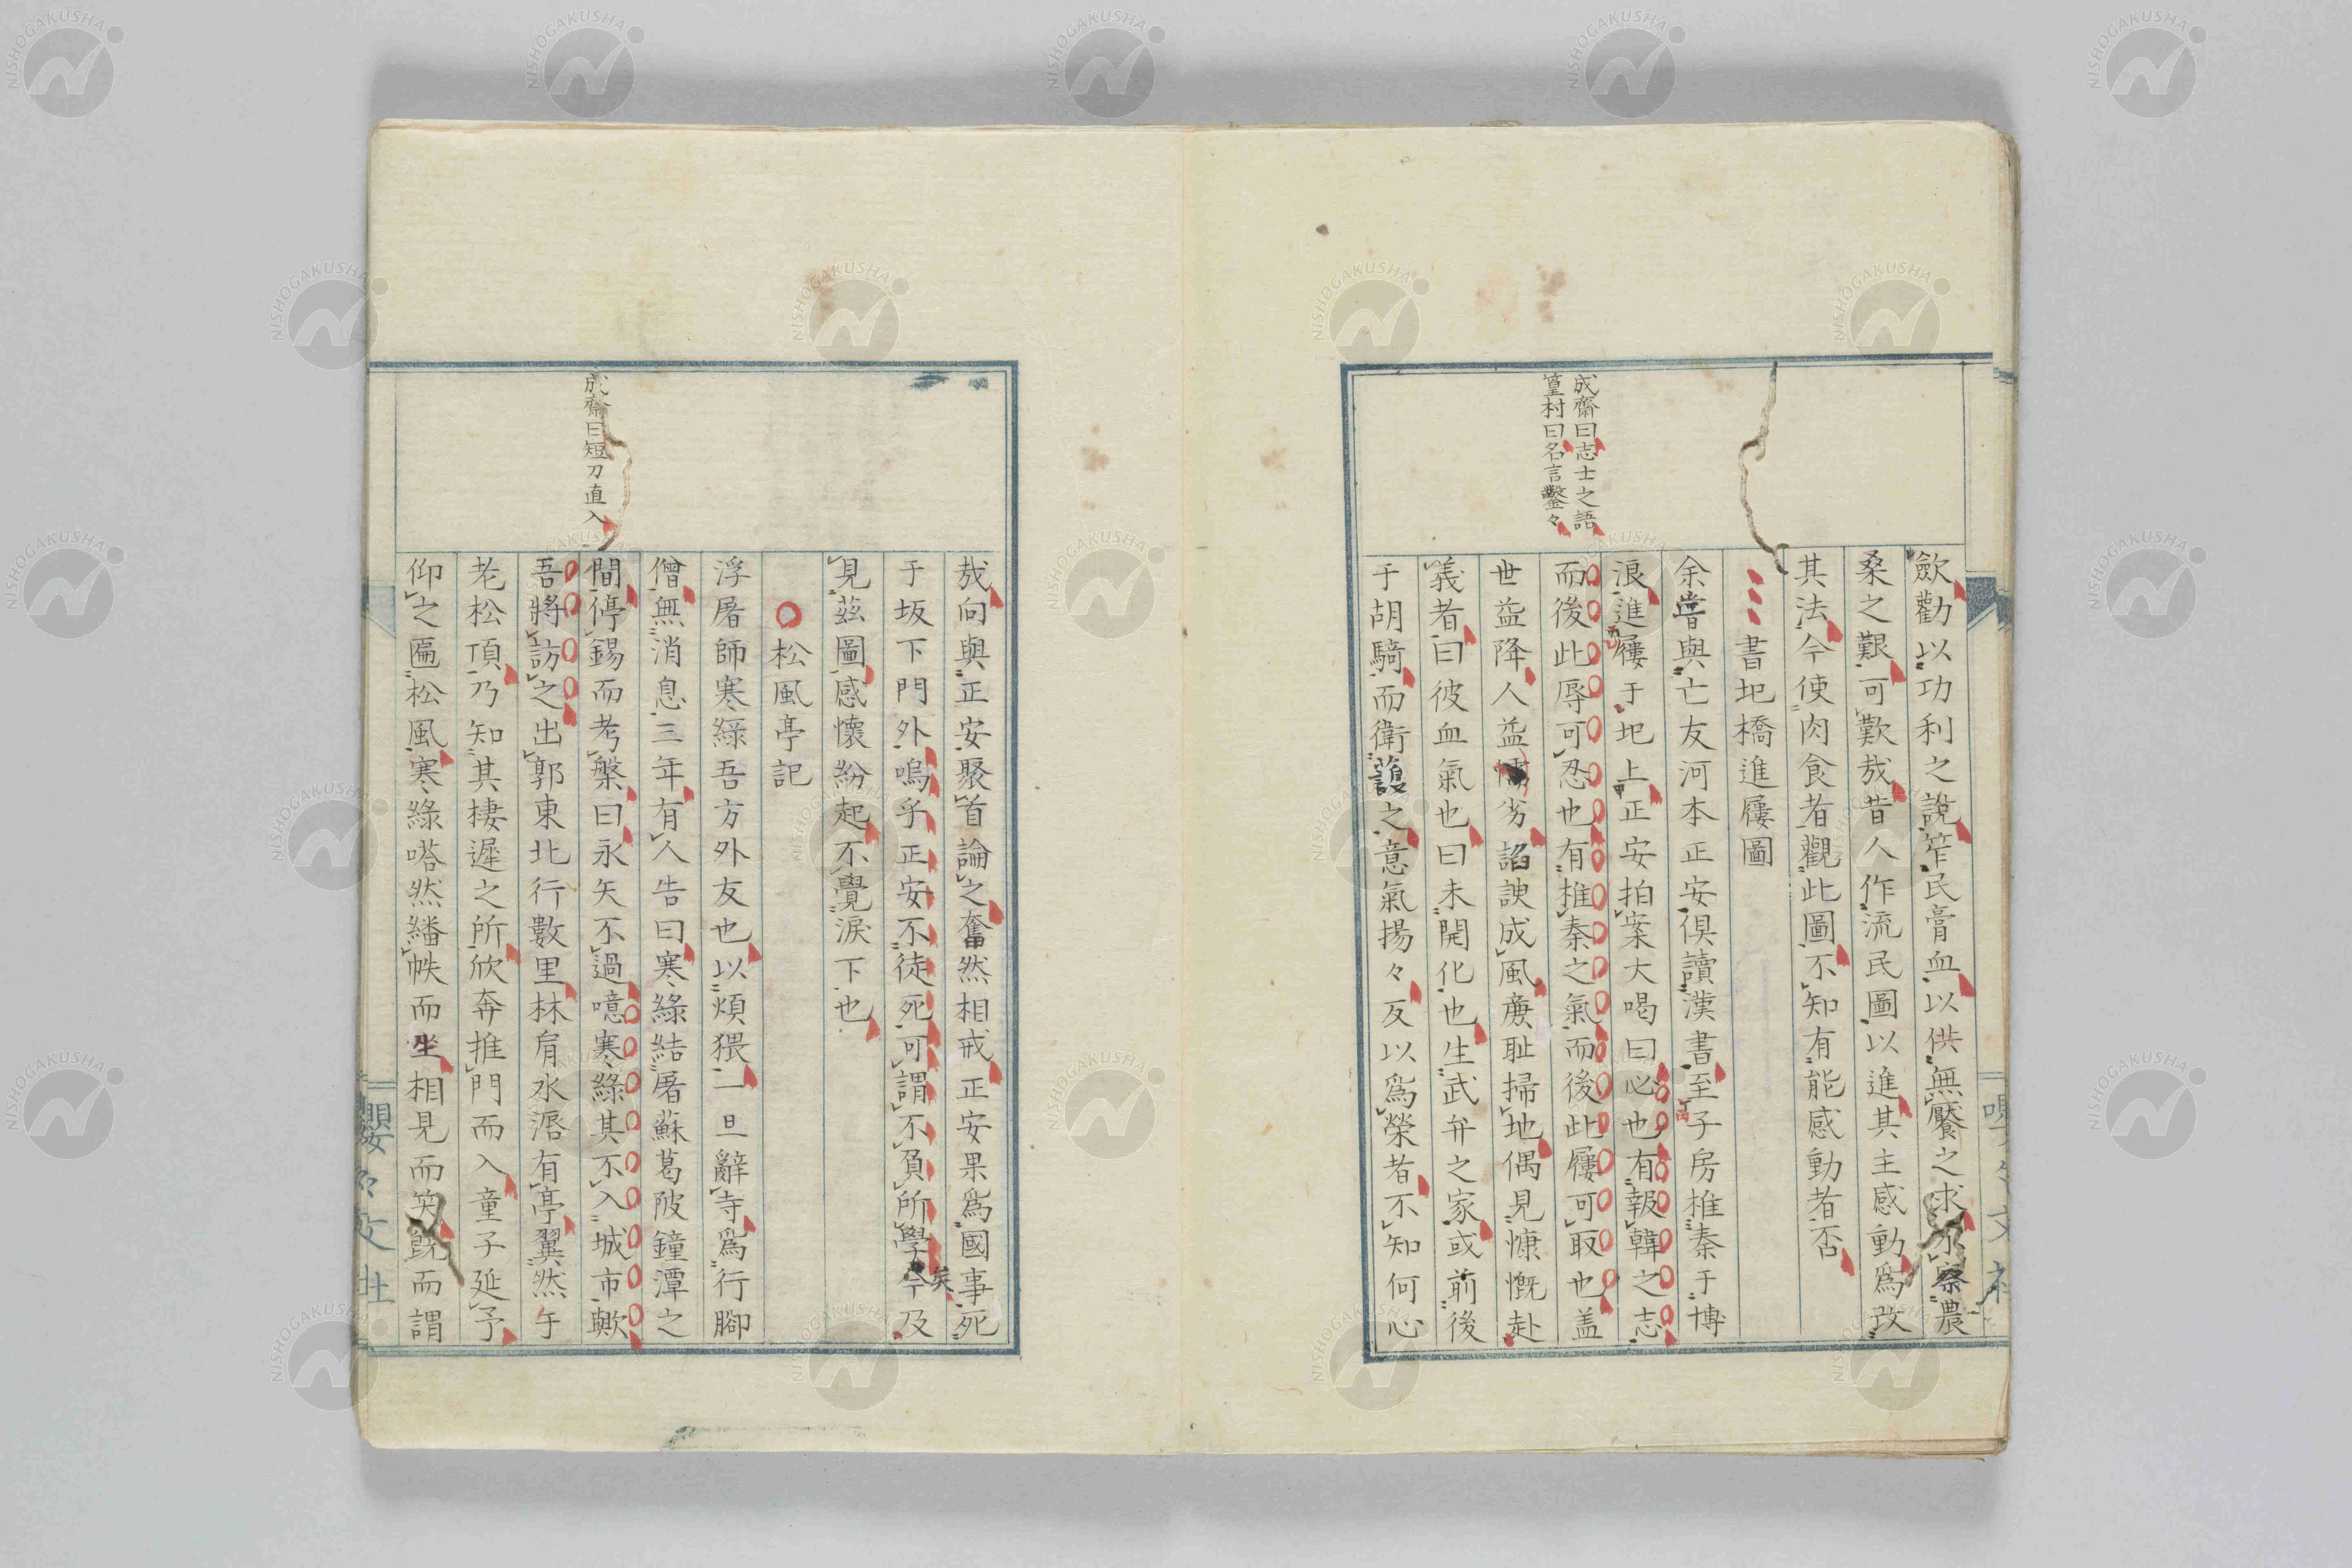 歛勸以功利之說笮民膏血以供無饜之求不察農
桑之艱可歎哉昔人作流民圖以進其主感動爲改
其法今使肉食者觀此圖不知有能感動者否
書圯橋進屨圖
余嘗與亡友河本正安俱讀漢書至子房椎秦于博
浪進屨于圯上正安拍案大喝曰心也有報韓之志
而後此辱可忍也有椎秦之氣而後此屨可取也盖
世益降人益懦劣諂諛成風廉恥掃地偶見慷慨赴
義者曰彼血氣也曰未開化也生武弁之家或前後
于胡騎而衛護之意氣揚々反以爲榮者不知何心
成齋曰志士之語
篁村曰名言鑿々
哉向與正安聚首論之奮然相戒正安果爲國事死
于坂下門外嗚乎正安不徒死可謂不負所學矣今及
見茲圖感懷紛起不覺淚下也
松風亭記
浮屠師寒綠吾方外友也以煩猥一旦辭寺爲行腳
僧無消息三年有人告曰寒綠結屠蘇葛陂鐘潭之
間停錫而考槃曰永矢不過噫寒綠其不入城市歟
吾將訪之出郭東北行數里林肩水漘有亭翼然于
老松頂乃知其棲遲之所欣奔推門而入童子延予
仰之匾松風寒綠嗒然繙帙而坐相見而笑既而謂
成齋曰短刀直入
嚶々文社
NISHOGAKUSHA